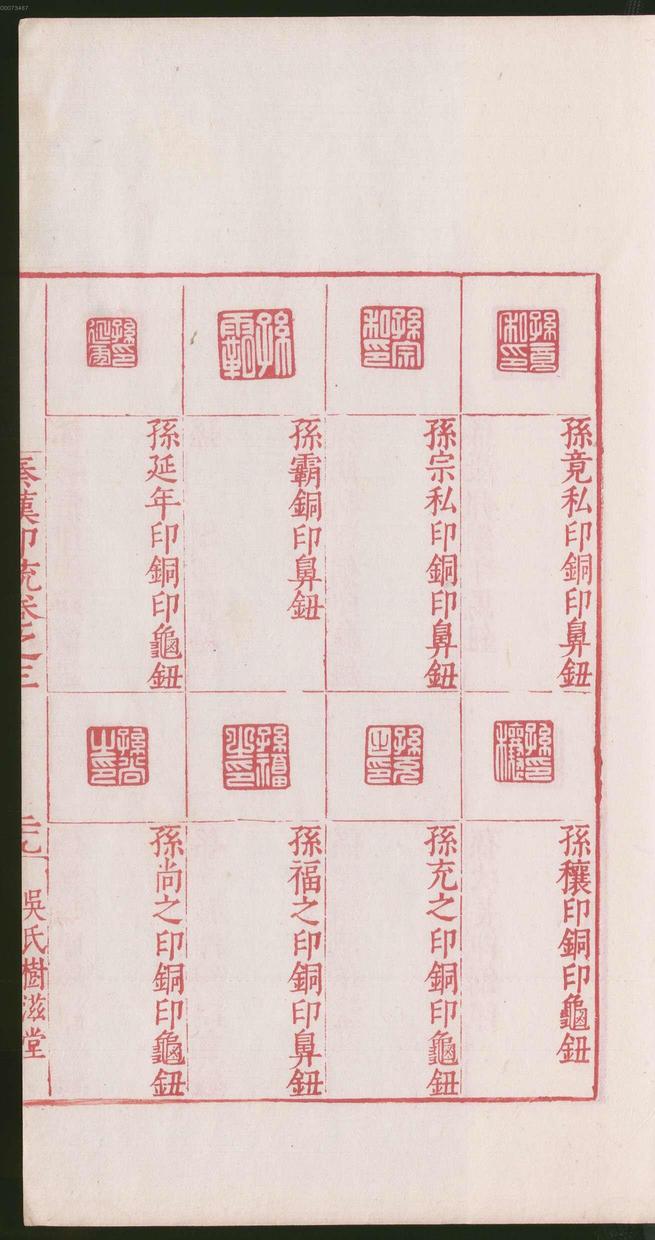 00073467
孫竟私印銅印鼻鈕
孫宗私印銅印鼻鈕
孫霸銅印鼻鈕
孫延年印銅印龜鈕
孫穰印銅印龜鈕
孫充之印銅印龜鈕
孫福之印銅印鼻鈕
孫尚之印銅印龜鈕
秦漢印統卷之三
吳氏樹滋堂